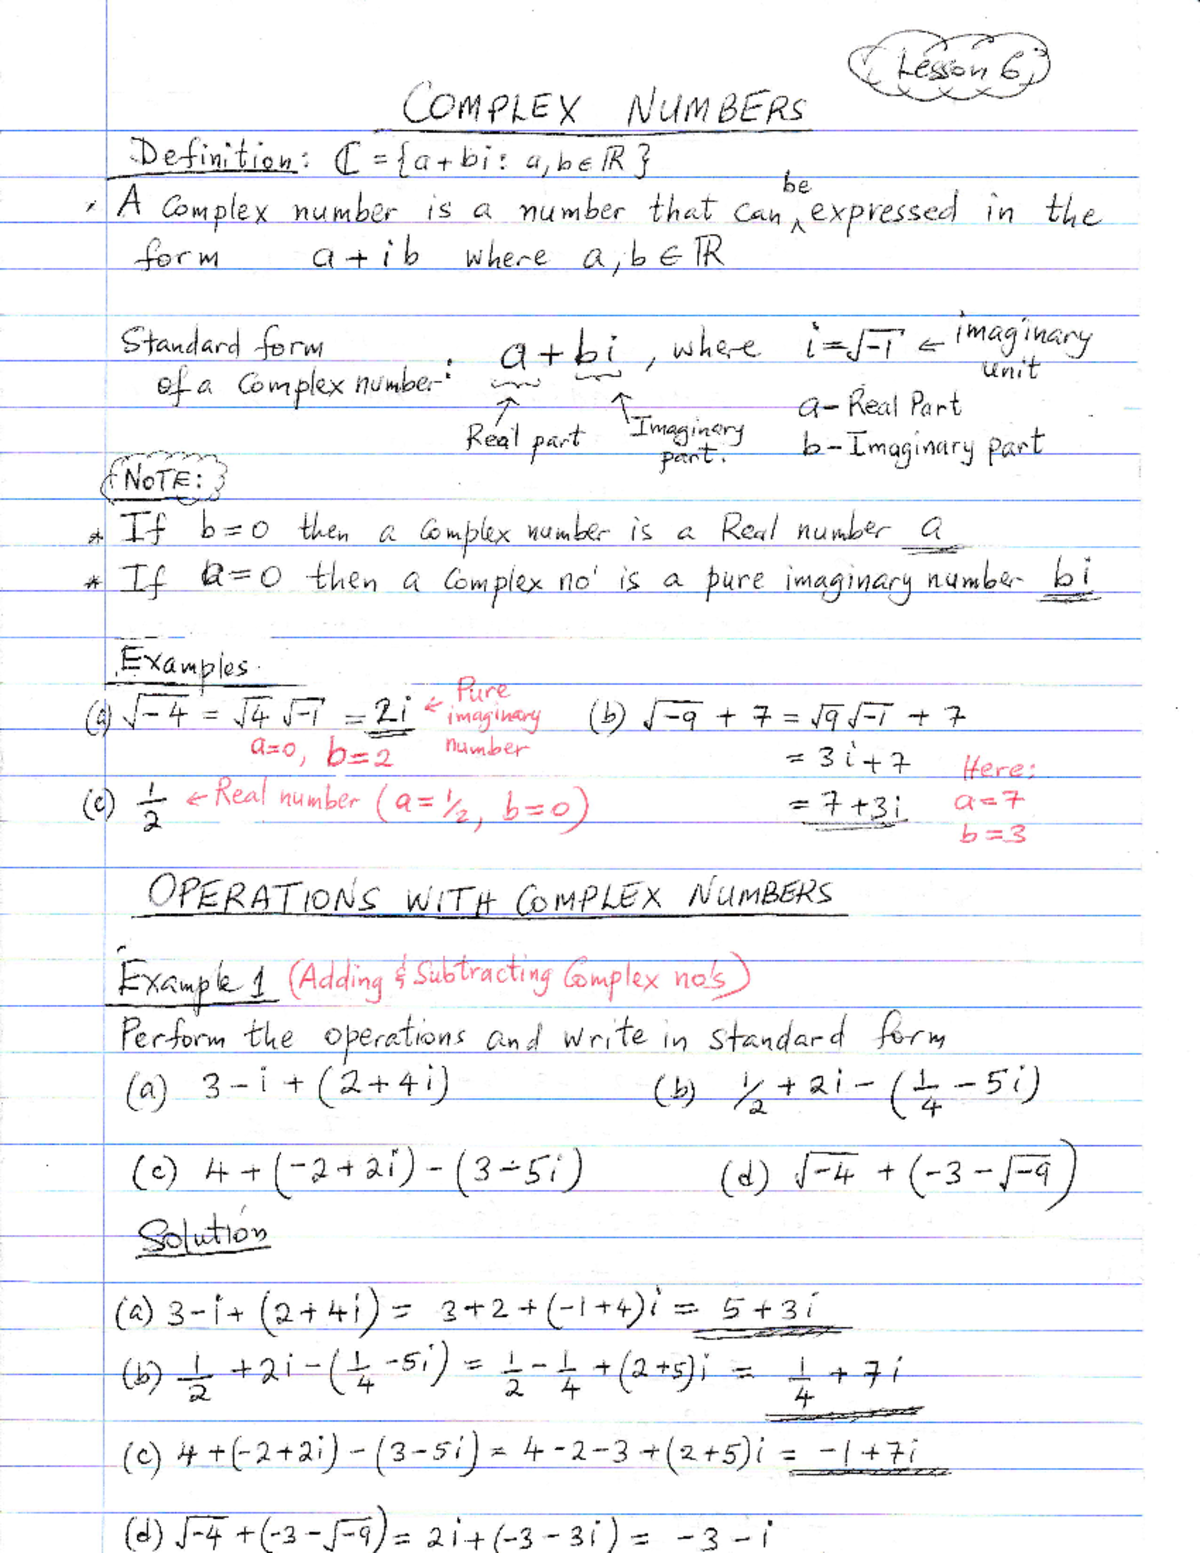 Lesson 6
COMPLEX NUMBERS
Definition: ℂ = {a+bi : a, b ∈ ℝ}
A Complex number is a number that can be expressed in the
form a + ib where a, b ∈ ℝ
Standard form of a Complex number: a + bi, where i = √-1 ← imaginary unit
Real part Imaginary part.
a - Real Part
b - Imaginary part
NOTE:
* If b = 0 then a Complex number is a Real number a
* If a = 0 then a Complex no' is a pure imaginary number bi
Examples.
(a) √-4 = √4 √-1 = 2i ← Pure imaginary number
a=0, b=2
(b) √-9 + 7 = √9 √-1 + 7
= 3i + 7
= 7 + 3i
Here:
a=7
b=3
(c) 1/2 ← Real number (a = 1/2, b=0)
OPERATIONS WITH COMPLEX NUMBERS
Example 1 (Adding & Subtracting Complex no's)
Perform the operations and write in standard form
(a) 3 - i + (2 + 4i) (b) 1/2 + 2i - (1/4 - 5i)
(c) 4 + (-2 + 2i) - (3 - 5i) (d) √-4 + (-3 - √-9)
Solution
(a) 3 - i + (2 + 4i) = 3 + 2 + (-1 + 4)i = 5 + 3i
(b) 1/2 + 2i - (1/4 - 5i) = 1/2 - 1/4 + (2+5)i = 1/4 + 7i
(c) 4 + (-2 + 2i) - (3 - 5i) = 4 - 2 - 3 + (2+5)i = -1 + 7i
(d) √-4 + (-3 - √-9) = 2i + (-3 - 3i) = -3 - i